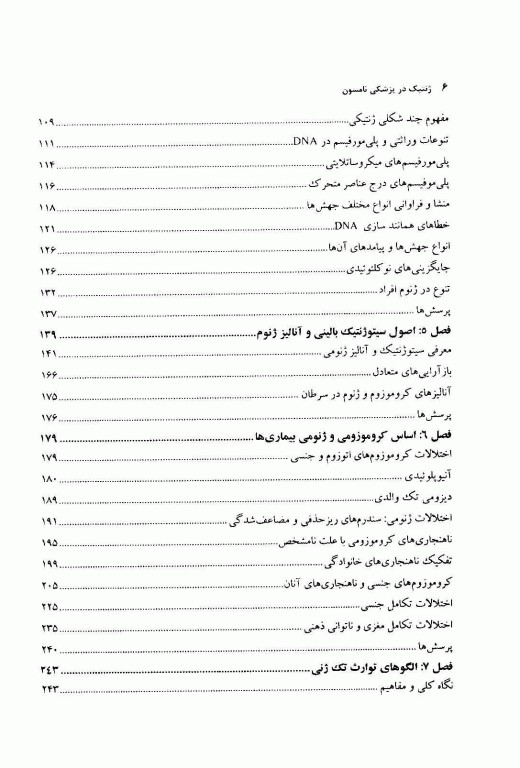 ۶ ژنتیک در پزشکی تامسون
مفهوم چند شکلی ژنتیکی ۱۰۹
تنوعات وراثتی و پلی‌مورفیسم در DNA ۱۱۱
پلی‌مورفیسم‌های میکروساتلایتی ۱۱۴
پلی‌موفیسم‌های درج عناصر متحرک ۱۱۶
منشا و فراوانی انواع مختلف جهش‌ها ۱۱۸
خطاهای همانند سازی DNA ۱۲۱
انواع جهش‌ها و پیامدهای آن‌ها ۱۲۶
جایگزینی‌های نوکلئوتیدی ۱۲۶
تنوع در ژنوم افراد ۱۳۲
پرسش‌ها ۱۳۷
فصل ۵: اصول سیتوژنتیک بالینی و آنالیز ژنوم ۱۳۹
معرفی سیتوژنتیک و آنالیز ژنومی ۱۴۱
بازآرایی‌های متعادل ۱۶۶
آنالیزهای کروموزوم و ژنوم در سرطان ۱۷۵
پرسش‌ها ۱۷۶
فصل ۶: اساس کروموزومی و ژنومی بیماری‌ها ۱۷۹
اختلالات کروموزوم‌های اتوزوم و جنسی ۱۷۹
آنیوپلوئیدی ۱۸۰
دیزومی تک والدی ۱۸۹
اختلالات ژنومی: سندرم‌های ریزحذفی و مضاعف‌شدگی ۱۹۱
ناهنجاری‌های کروموزومی با علت نامشخص ۱۹۵
تفکیک ناهنجاری‌های خانوادگی ۱۹۹
کروموزوم‌های جنسی و ناهنجاری‌های آنان ۲۰۵
اختلالات تکامل جنسی ۲۲۵
اختلالات تکامل مغزی و ناتوانی ذهنی ۲۳۵
پرسش‌ها ۲۴۰
فصل ۷: الگوهای توارث تک ژنی ۲۴۳
نگاه کلی و مفاهیم ۲۴۳